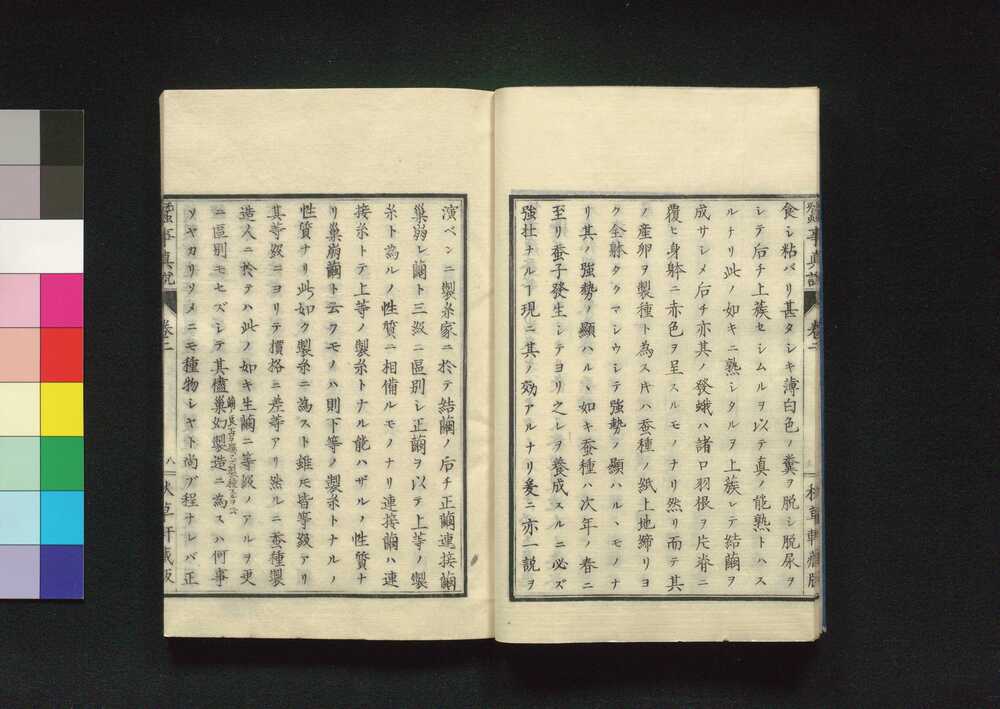 食シ粘バリ甚タシキ薄白色ノ糞ヲ脱シ脱尿ヲ
シテ后チ上蔟セシムルヲ以テ真ノ能熟トハス
ルナリ此ノ如キニ熟シタルヲ上蔟シテ結繭ヲ
成サシメ后チ亦其ノ發蛾ハ諸口羽根ヲ片脊ニ
覆ヒ身躰ニ赤色ヲ呈スルモノナリ然リ而テ其
ノ産卵ヲ製種ト為スㇳキハ蚕種ノ紙上地締リヨ
ク全躰クヽマシウシテ強勢ノ顯ハルヽモノナ
リ其ノ強勢ノ顯ハルヽ如キ蚕種ハ次年ノ春ニ
至リ蚕子發生シテヨリ之レヲ養成スルニ必ズ
強壮ナルヿ現ニ其ノ効アルナリ爰ニ亦一説ヲ
蠶事真説 巻二
演ベンニ製糸家ニ於テ結繭ノ后チ正繭連接繭
巣崩レ繭ト三級ニ區別シ正繭ヲ以テ上等ノ製
糸ト為ルノ性質ニ相備ルモノナリ連接繭ハ連
接糸トテ上等ノ製糸トナル能ハザルノ性質ナ
リ巣崩繭ト云クモノハ則下等ノ製糸トナルノ
性質ナリ此如ク製糸ニ為スト雖ㇳモ皆等級アリ
其等級ニヨリテ價格ニ差等アリ然ルニ蚕種製
造人ニ於テハ此ノ如キ生繭ニ等級ノアルヲ更
ニ區別モセズシテ其儘巣幻製造ニ為スハ何事
ソヤカリソメニモ種物シヤト尚ブ程ナレバ正
蠶事真説 巻二 八 秋草軒蔵版